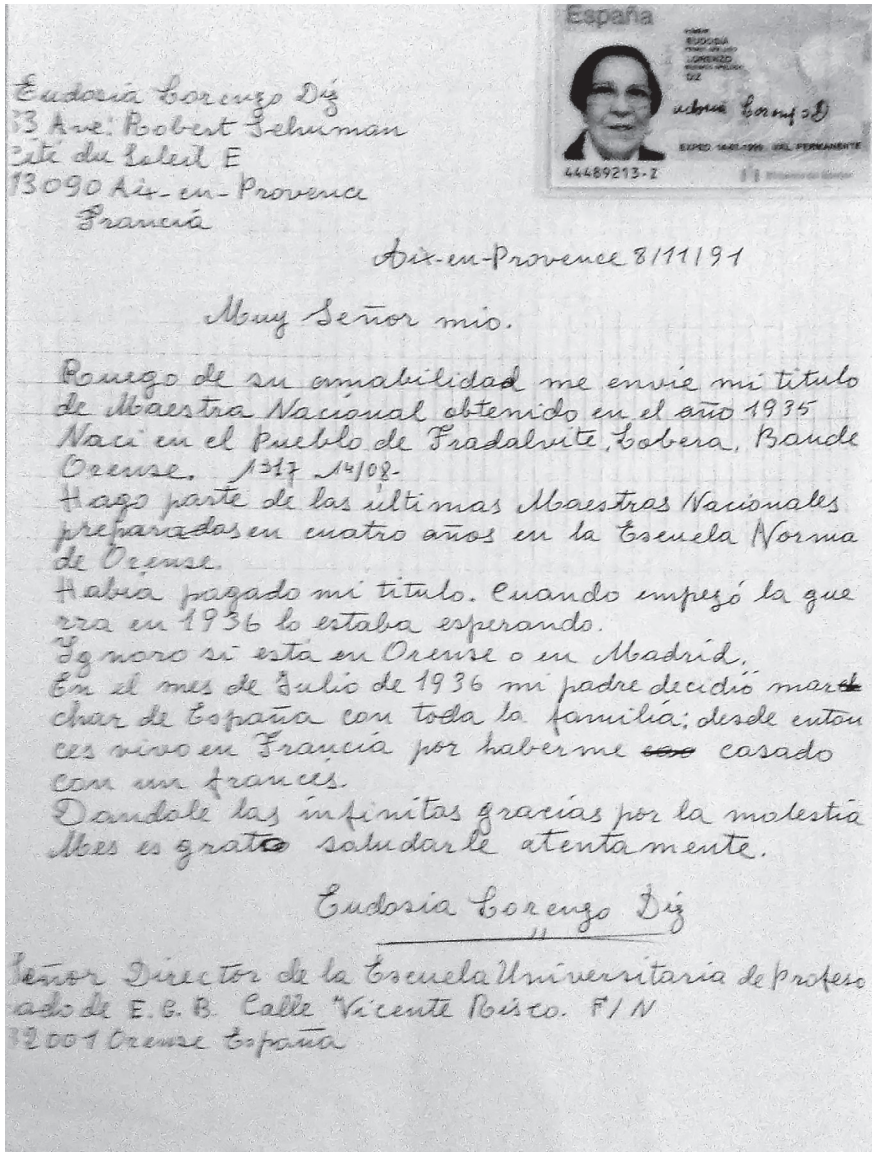 España
EUDOSIA
LORENZO
DIZ
Eudosia Lorenzo D
EXPED. VAL. PERMANENTE
44489213-Z
Eudosia Lorenzo Diz
33 Ave: Robert Schuman
Cité du Soleil E
13090 Aix-en-Provence
Francia
Aix-en-Provence 8/11/91
Muy Señor mio.
Ruego de su amabilidad me envie mi titulo
de Maestra Nacional obtenido en el año 1935
Naci en el Pueblo de Fradalvite, Lobera, Bande
Orense. 1917 14/08-
Hago parte de las ultimas Maestras Nacionales
preparadas en cuatro años en la Escuela Norma
de Orense.
Habia pagado mi titulo. Cuando empezó la gue
rra en 1936 lo estaba esperando.
Ignoro si está en Orense o en Madrid.
En el mes de Julio de 1936 mi padre decidió mar
char de España con toda la familia; desde enton
ces vivo en Francia por haberme casado
con un francés.
Dandole las infinitas gracias por la molestia
Mes es grato saludarle atentamente.
Eudosia Lorenzo Diz
Señor Director de la Escuela Universitaria de Profeso
ado de E.G.B. Calle Vicente Risco. F/N
32001 Orense España